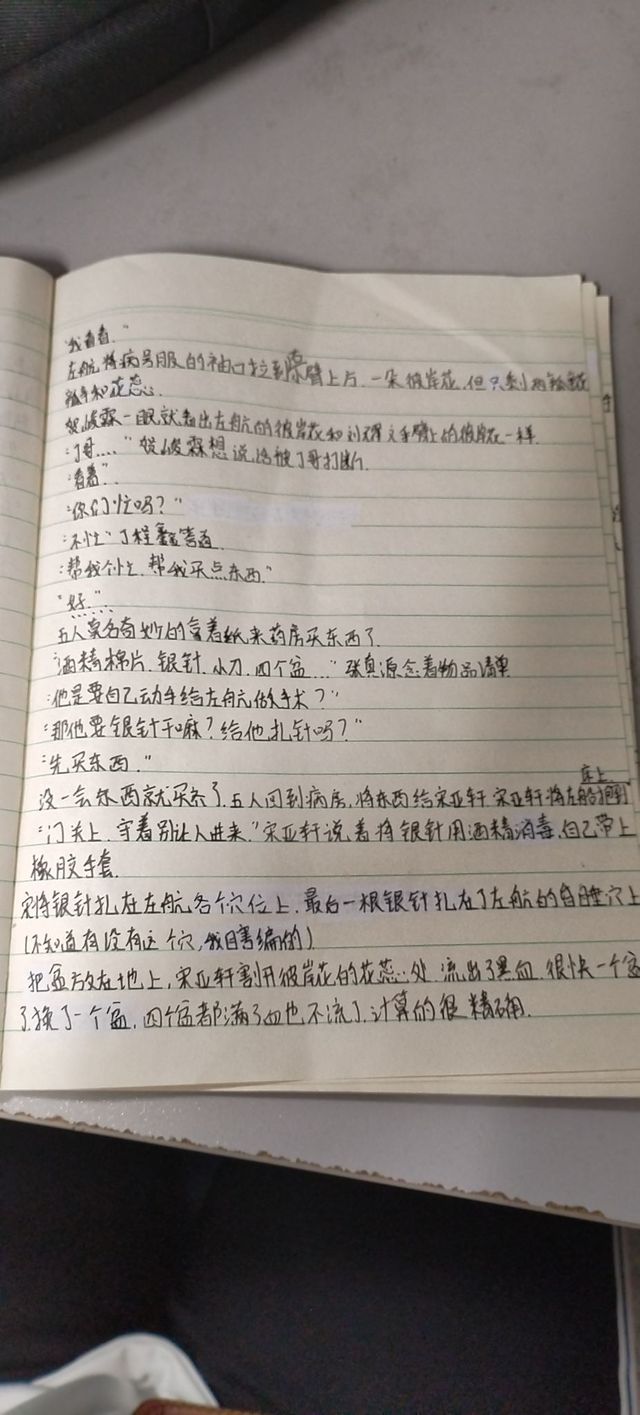 "我看看."
左航将病号服的袖口拉到 臂上方.一朵彼岸花.但只剩两
和花蕊.
贺峻霖一眼就看出左航的彼岸花和刘耀文手臂上的彼岸花一样.
"丁哥...."贺峻霖想说话被丁哥打断.
"看着".
"你们忙吗?"
"不忙"丁程鑫答道.
"帮我个忙.帮我买点东西."
"好."
五人莫名奇妙的拿着纸来药房买东西了.
"酒精棉片.银针.小刀.四个盆..."张真源念着物品清单
"他是要自己动手给左航做手术?"
"那他要银针干嘛?给他扎针吗?"
"先买东西."
没一会东西就买齐了.五人回到病房,将东西给宋亚轩.宋亚轩将左航抱到床上.
"门关上.守着别让人进来."宋亚轩说着将银针用酒精消毒.自己带上
橡胶手套.
宋将银针扎在左航各个穴位上.最后一根银针扎在了左航的自睡穴上
(不知道有没有这个穴,我自己编的)
把盆放在地上,宋亚轩割开彼岸花的花蕊处.流出了黑血.很快一个盆
了.换了一个盆,四个盆都满了血也不流了.计算的很精确.